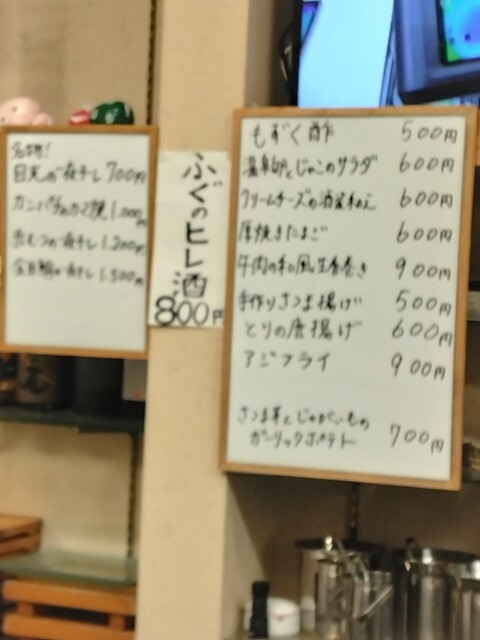 名物!
目光の一夜干し 700円
カンパチのカマ焼 1,000円
赤むつの一夜干し 1,200円
金目鯛の一夜干し 1,500円
ふぐのヒレ酒
800円
もずく酢 500円
温泉卵とじゃこのサラダ 600円
クリームチーズの酒盗和え 600円
厚焼きたまご 600円
牛肉の和風生春巻き 900円
手作りさつま揚げ 500円
とりの唐揚げ 600円
アジフライ 900円
さつま芋とじゃがいもの
ガーリックポテト 700円